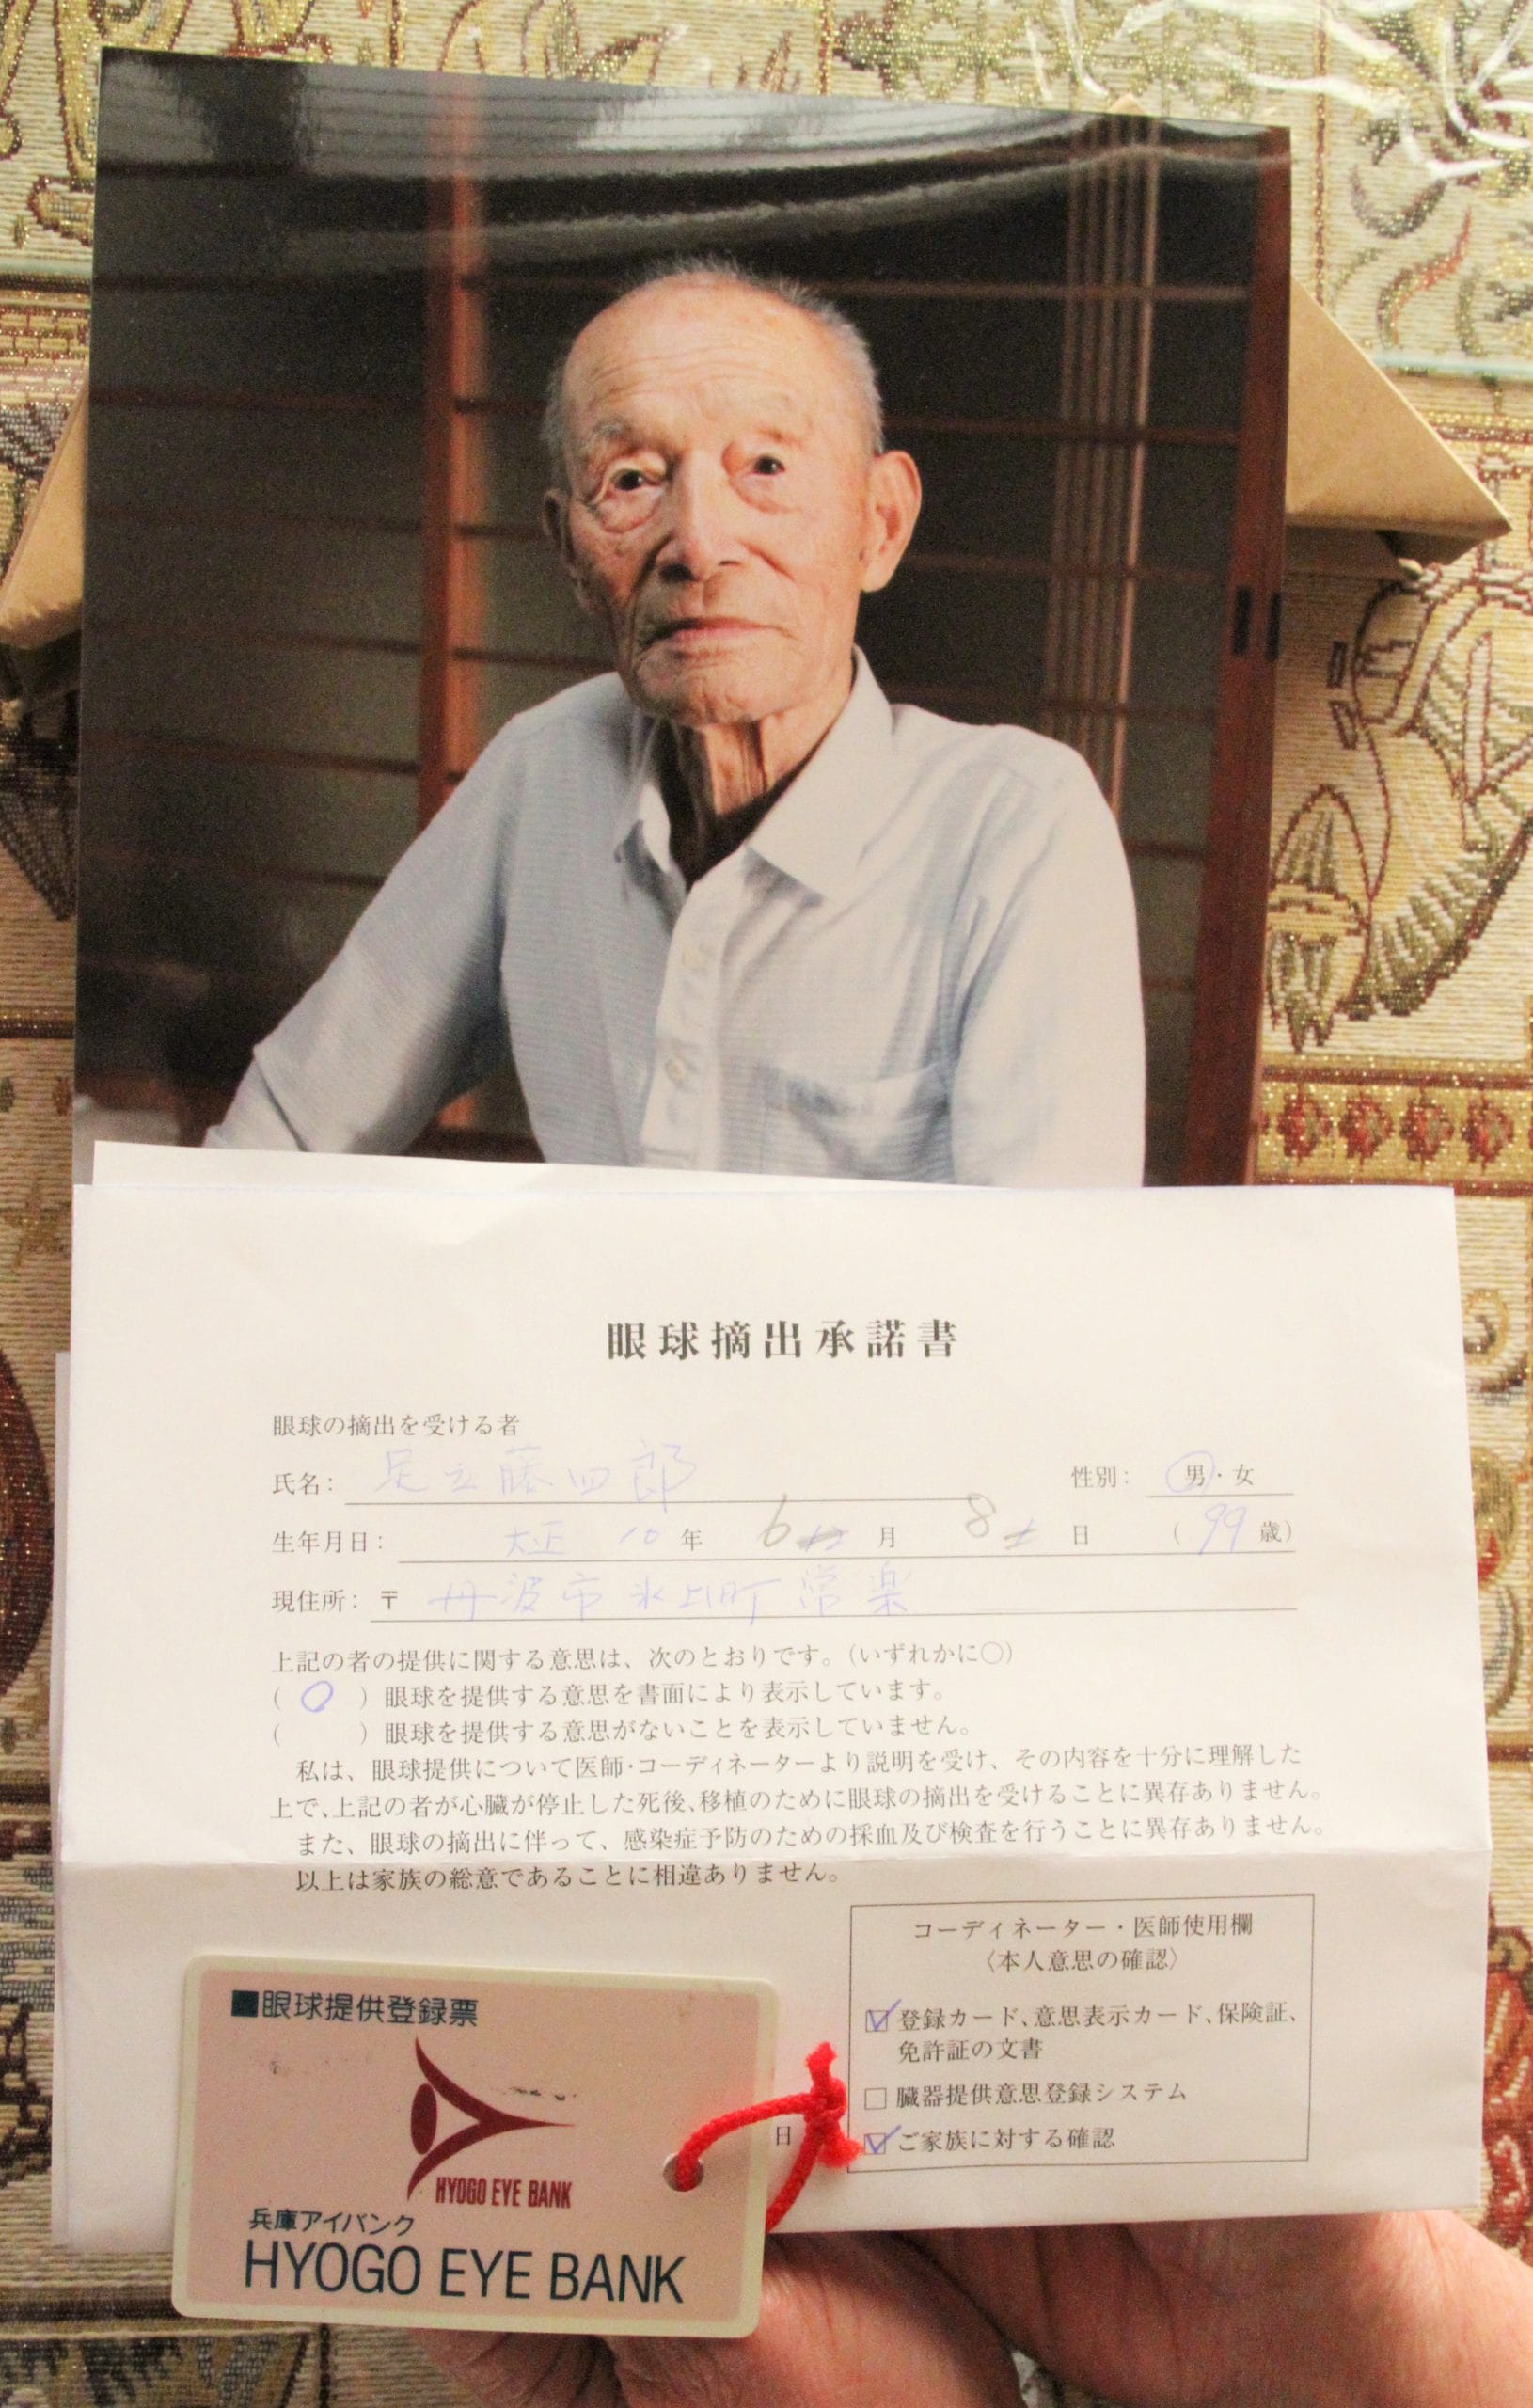 眼球摘出承諾書
眼球の摘出を受ける者
氏名： 足立藤四郎 性別： 男・女
生年月日： 大正 10 年 6 月 8 日 （ 99 歳）
現住所： 〒 丹波市氷上町常楽
上記の者の提供に関する意思は、次のとおりです。（いずれかに〇）
（ 〇 ）眼球を提供する意思を書面により表示しています。
（ ）眼球を提供する意思がないことを表示していません。
私は、眼球提供について医師・コーディネーターより説明を受け、その内容を十分に理解した
上で、上記の者が心臓が停止した死後、移植のために眼球の摘出を受けることに異存ありません。
また、眼球の摘出に伴って、感染症予防のための採血及び検査を行うことに異存ありません。
以上は家族の総意であることに相違ありません。
コーディネーター・医師使用欄
〈本人意思の確認〉
☑登録カード、意思表示カード、保険証、
免許証の文書
□臓器提供意思登録システム
☑ご家族に対する確認
日
■眼球提供登録票
HYOGO EYE BANK
兵庫アイバンク
HYOGO EYE BANK